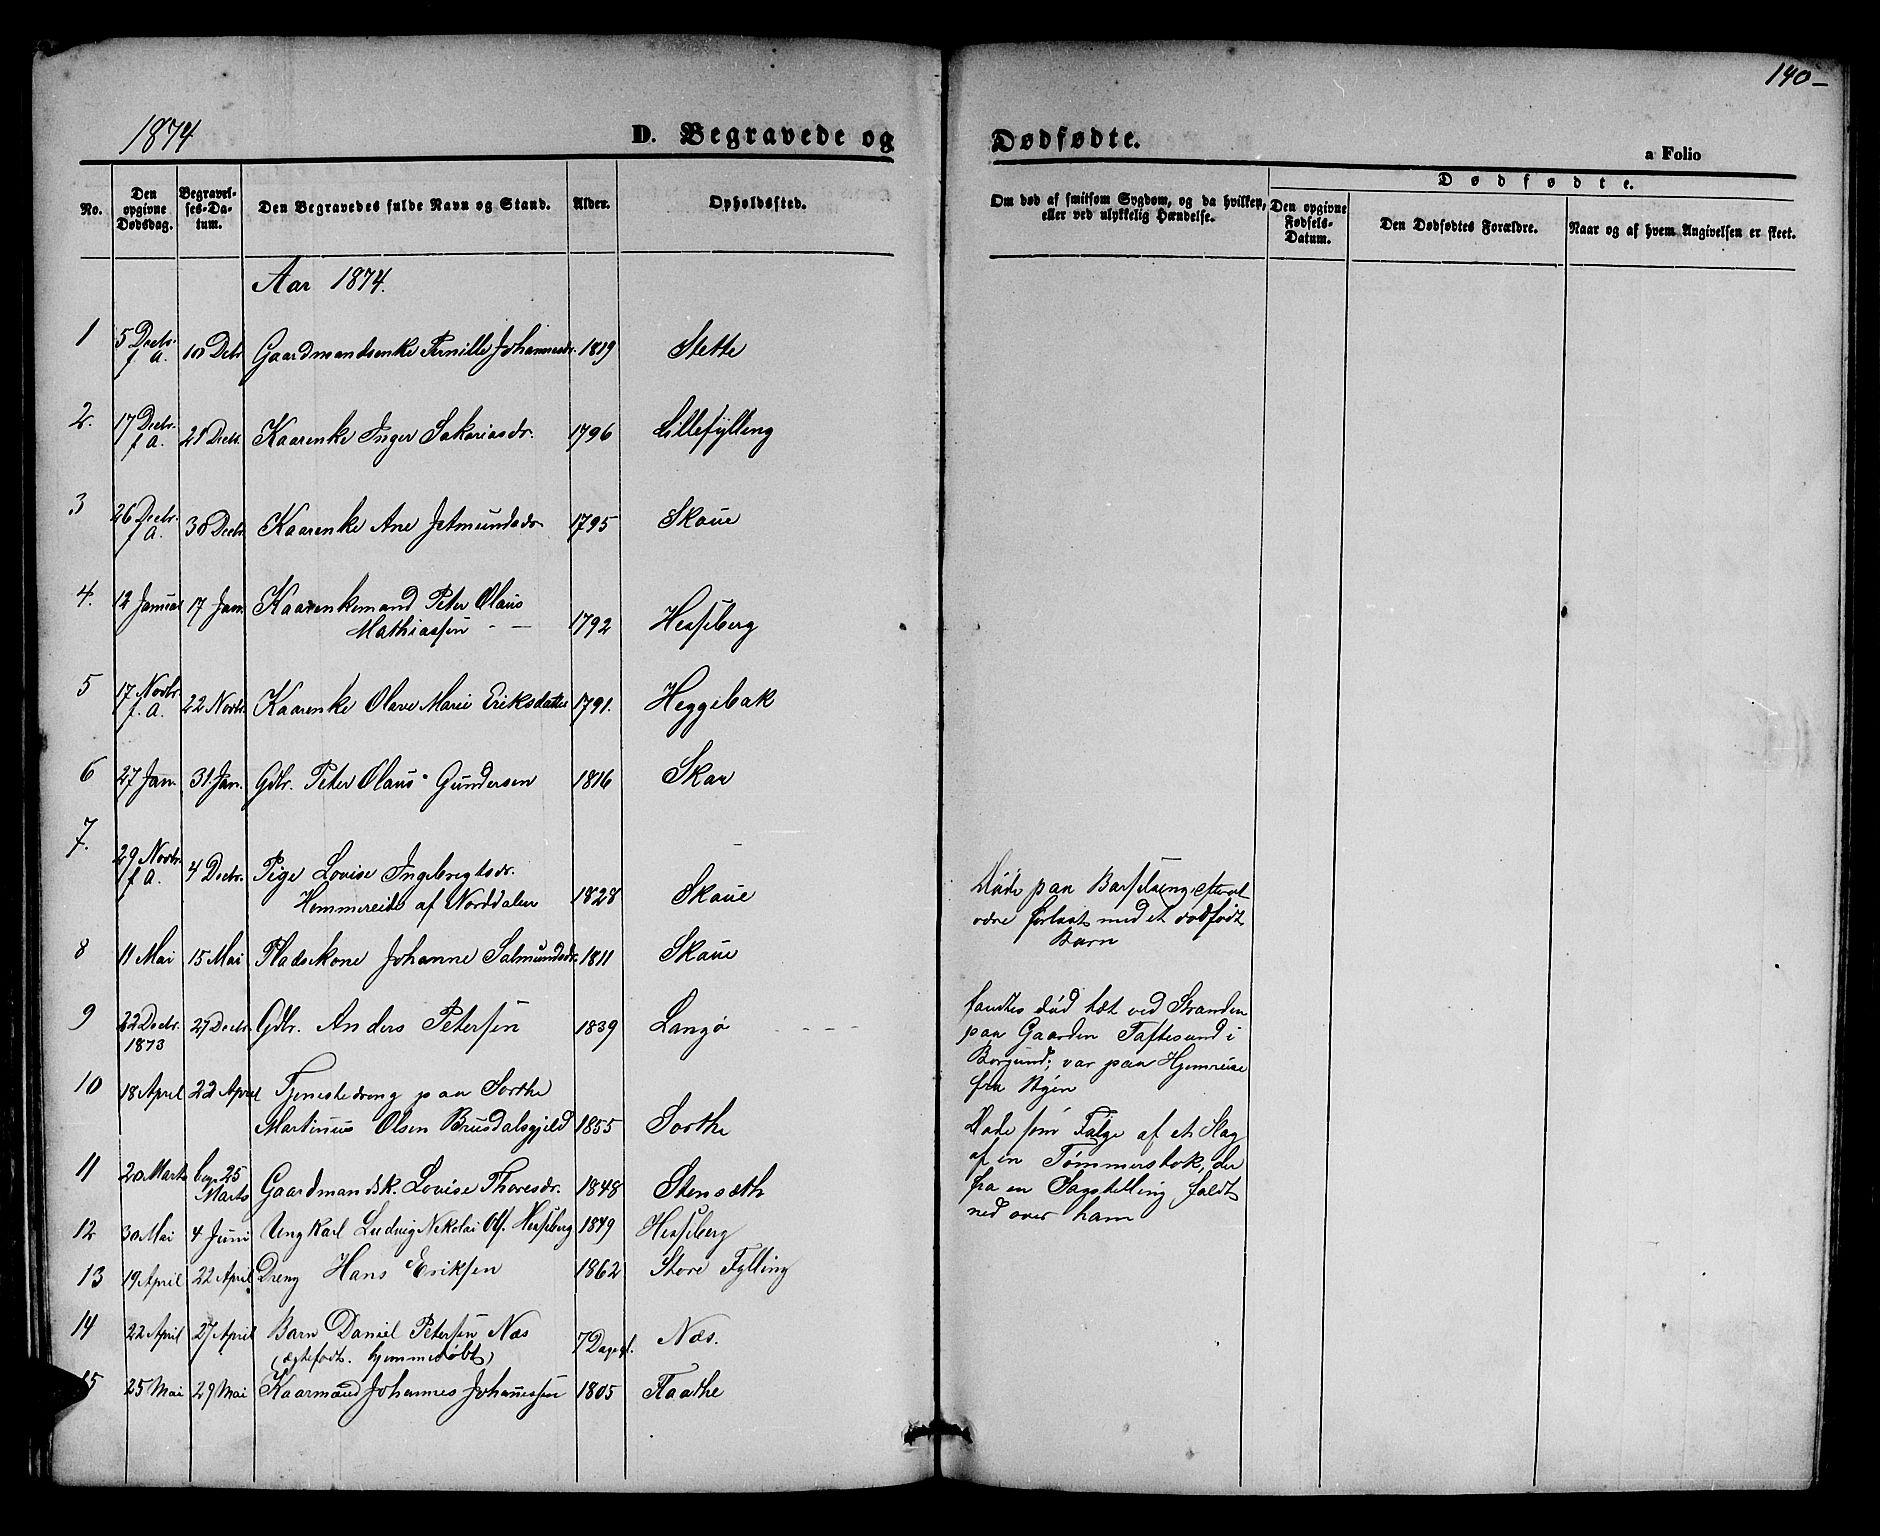 140-
1874
D. Begravede og Dødfødte.
a Folio
No.
Den opgivne Dødsdag.
Begravelses-Datum.
Den Begravedes fulde Navn og Stand.
Alder.
Opholdssted.
Om død af smitsom Sygdom, og da hvilken, eller ved ulykkelig Hændelse.
Dødfødte.
Den opgivne Fødsels-Datum.
Den Dødfødtes Forældre.
Naar og af hvem Angivelsen er skeet.
Aar 1874.
1 5 Decbr. f A. 10 Decbr Gaardmandsenke Pernille Johannesdr. 1819 Slette
2. 17 Decbr. f A. 21 Decbr. Kaarenke Inger Sakariasdr. 1796 Lillefylling
3 26 Decbr. f A. 30 Decbr. Kaarenke Ane Jetmundsdr 1795 Skoue
4. 12 Januar 17 Jan. Kaarenkemand Peter Olaus
Mathiassen 1792 Hesseberg
5 17 Novbr. f. A. 22 Novbr. Kaarenke Olave Marie Eriksdatter 1791. Heggebak
6 27 Jan. 31. Jan. Gdbr. Peter Olaus Gundersen 1816 Skar
7. 29 Novbr. f A. 4 Decbr. Pige Lovise Ingebrigtsdr.
Hommereide af Norddalen 1828 Skoue
Døde paa Barselseng efter at
være forløst med et dødfødt
Barn
8 11 Mai 15 Mai Pladskone Johanne Salmundsdr. 1811 Skoue
9 22 Decbr. 1873 27 Decbr. Gdbr. Anders Petersen 1839 Langø
fandtes død tæt ved Stranden
paa Gaarden Taftesund i
Borgund; var paa Hjemreise
fra Byen
10 18 April 22 April Tjenestedreng paa Sorthe
Martinus Olsen Brusdalsgjeld 1855 Sorthe
Døde som Følge af et Slag
af en Tømmerstok, der
fra en Sagstelling faldt
ned over ham
11 20 Marts begr 25 Marts Gaardmandsk. Lovise Thoresdr. 1848 Stensæth
12 30 Mai 4 Juni Ungkarl Ludvig Nikolai Ols. Hesseberg 1849 Hesseberg
13 19 April 22 April Dreng Hans Eriksen 1862 Store Fylling
14 22 April 27 April Barn Daniel Petersen Næs
(ægtefødt. hjemmedøbt) 7 Dage gl. Næs.
15 25 Mai 29 Mai Kaarmand Johannes Johannessen 1805 Flaathe